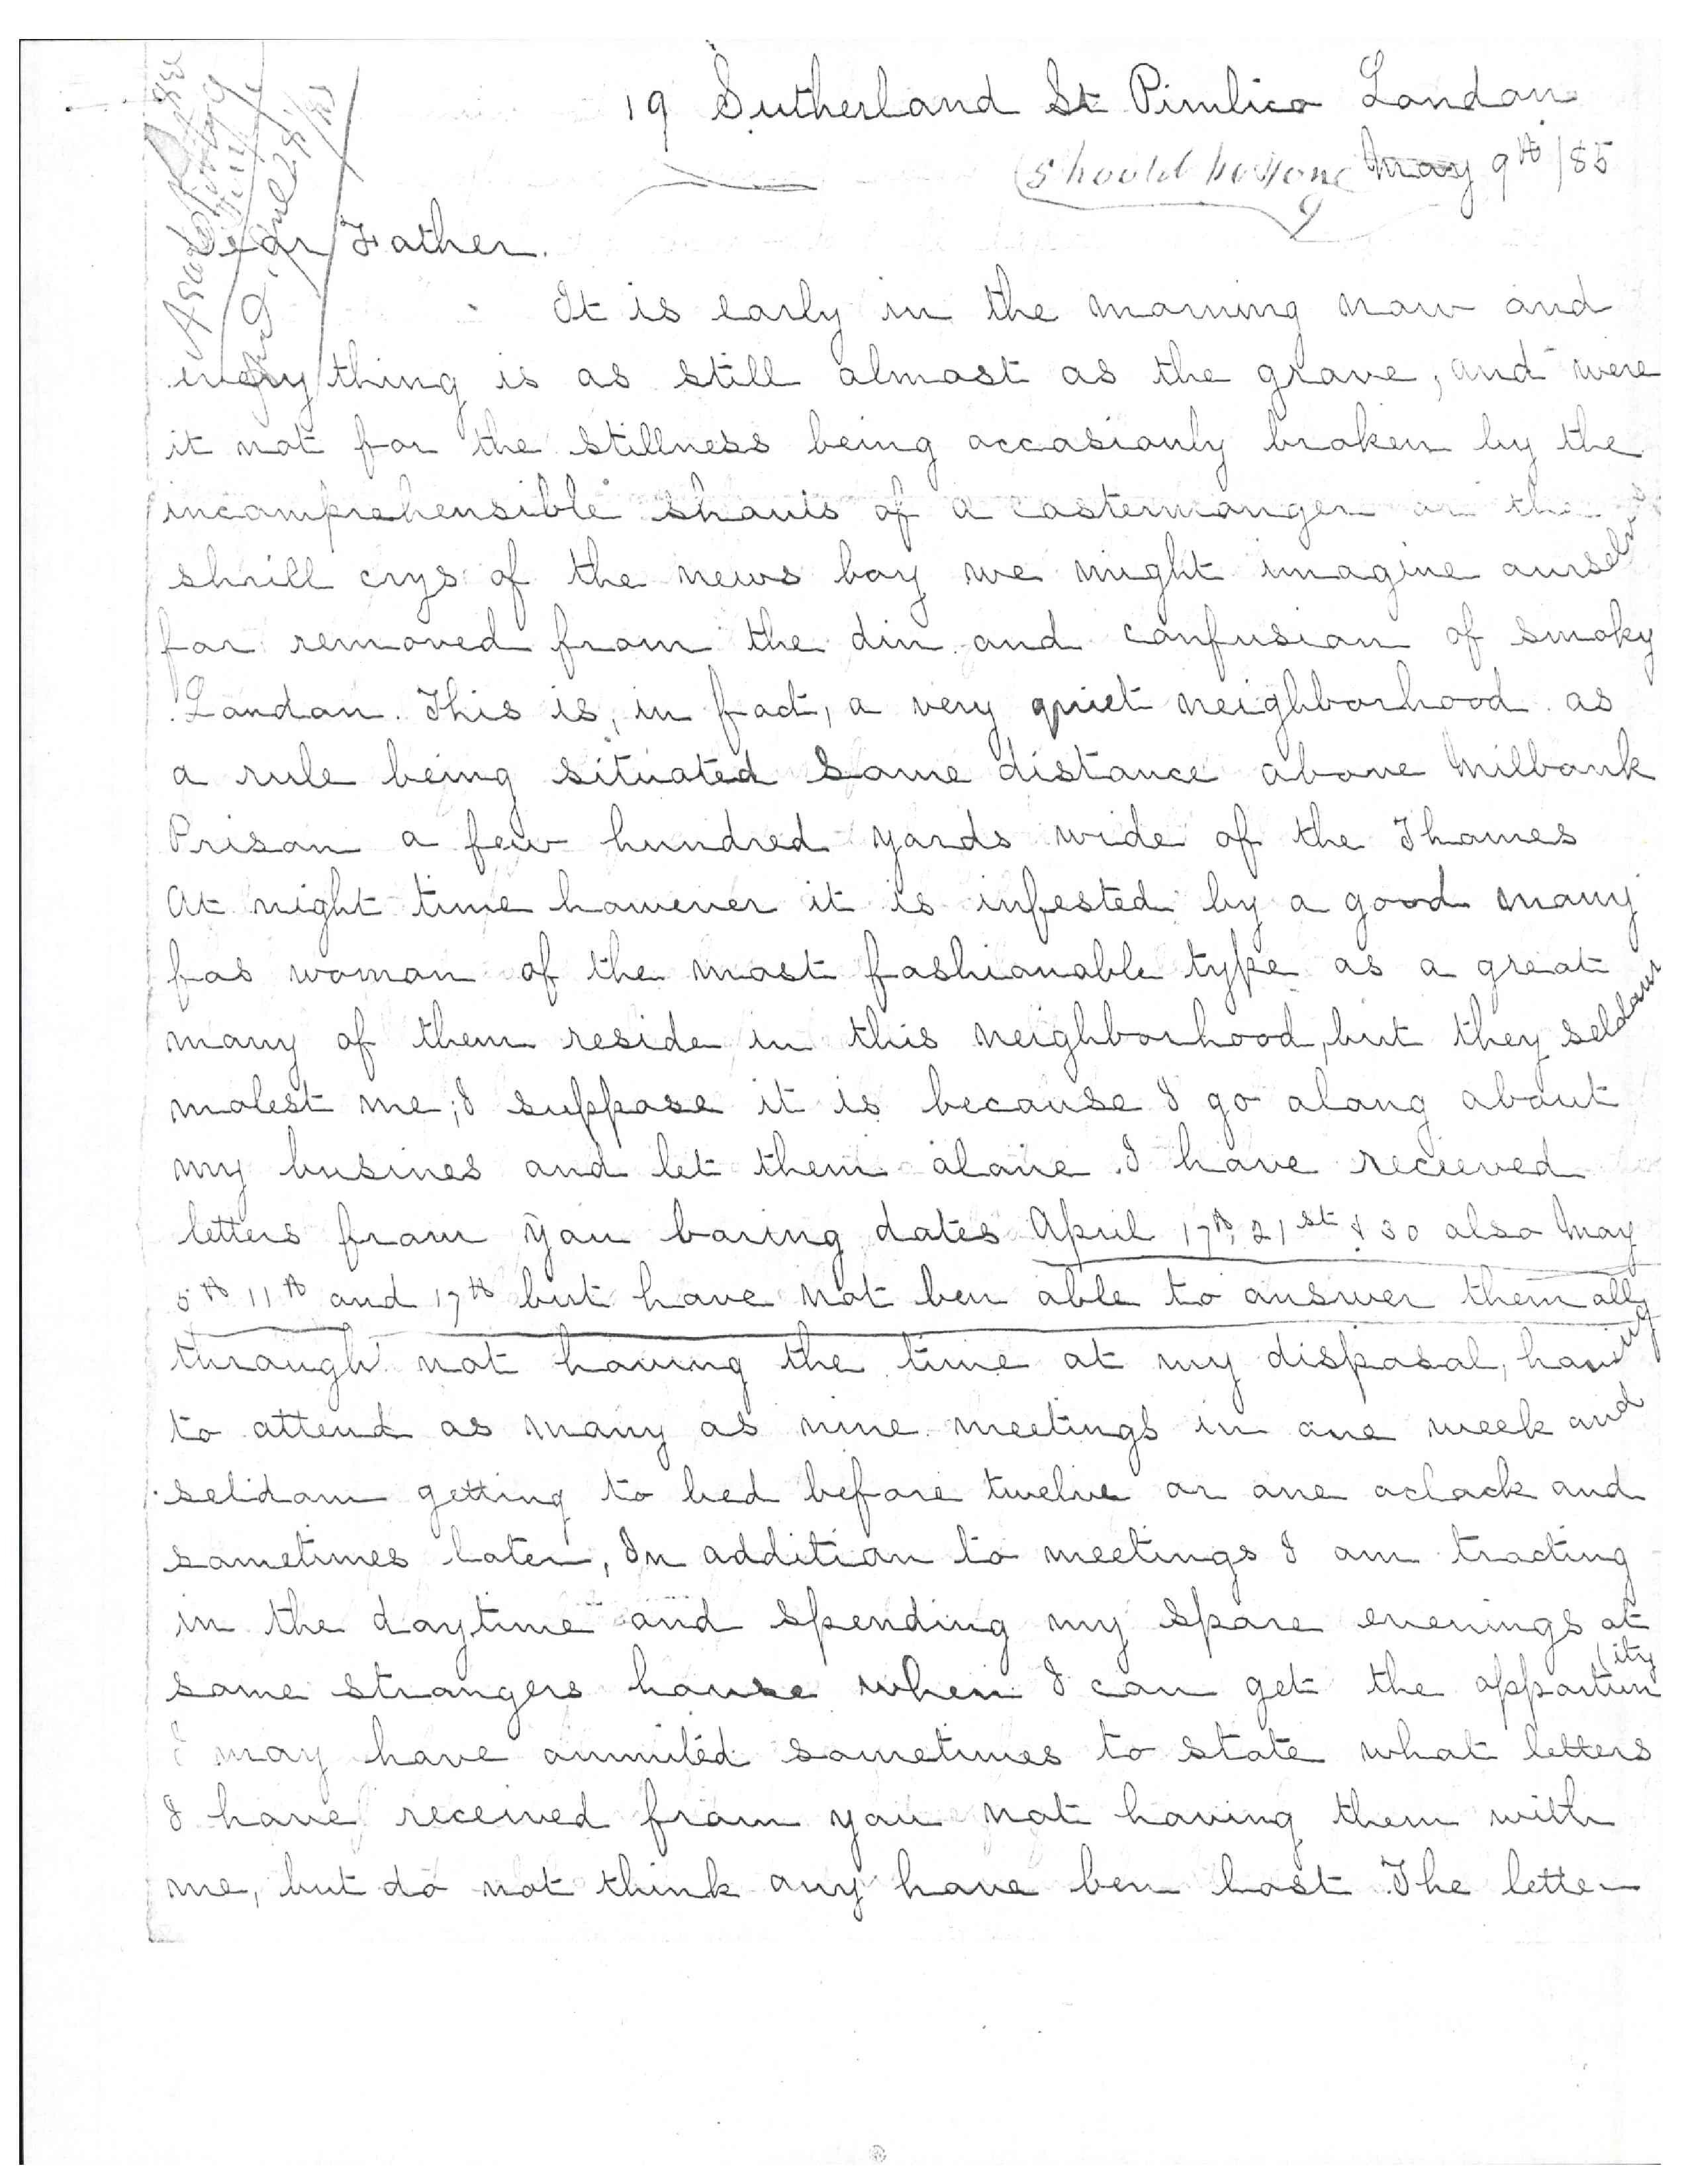 19 Sutherland St Pimlico London
(should be June May 9th /85
9
Dear Father.
It is early in the morning now and
everything is as still almost as the grave, and were
it not for the stillness being occasionly broken by the
incomprehensible shouts of a costermonger or the
shrill crys of the news boy we might imagine ourselves
far removed from the din and confusion of smoky
London. This is, in fact, a very quiet neighborhood as
a rule being situated some distance above Milbank
Prison a few hundred yards wide of the Thames
At night time however it is infested by a good many
fas woman of the most fashionable type as a great
many of them reside in this neighborhood, but they seldom
molest me; I suppose it is because I go along about
my busines and let them alone. I have recieved
letters from you baring dates April 17th, 21st & 30 also May
5th 11th and 17th but have not ben able to answer them all
through not having the time at my disposal, having
to attend as many as nine meetings in one week and
seldom getting to bed before twelve or one oclock and
sometimes later, In addition to meetings I am tracting
in the daytime and spending my spare evenings at
some strangers house when I can get the opportunity
I may have ommited sometimes to state what letters
I have received from you not having them with
me, but do not think any have ben lost The letter